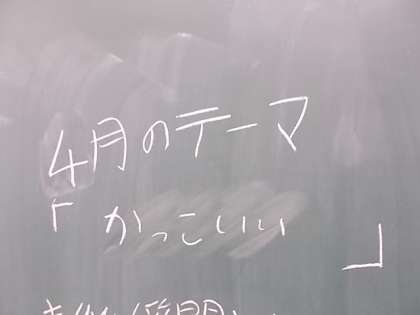 4月のテーマ
「かっこいい」
質問